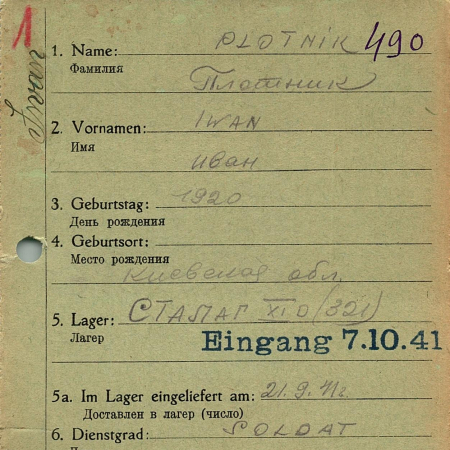 1
1. Name: PLOTNIK 490
Фамилия Плотник
2. Vornamen: IWAN
Имя
Иван
3. Geburtstag: 1920
День рождения
4. Geburtsort:
Место рождения
Киевская обл.
5. Lager: СТАЛАГ XI D (321)
Лагер
Eingang 7.10.41
5a. Im Lager eingeliefert am: 21.9.41г.
Доставлен в лагер (число)
6. Dienstgrad: SOLDAT